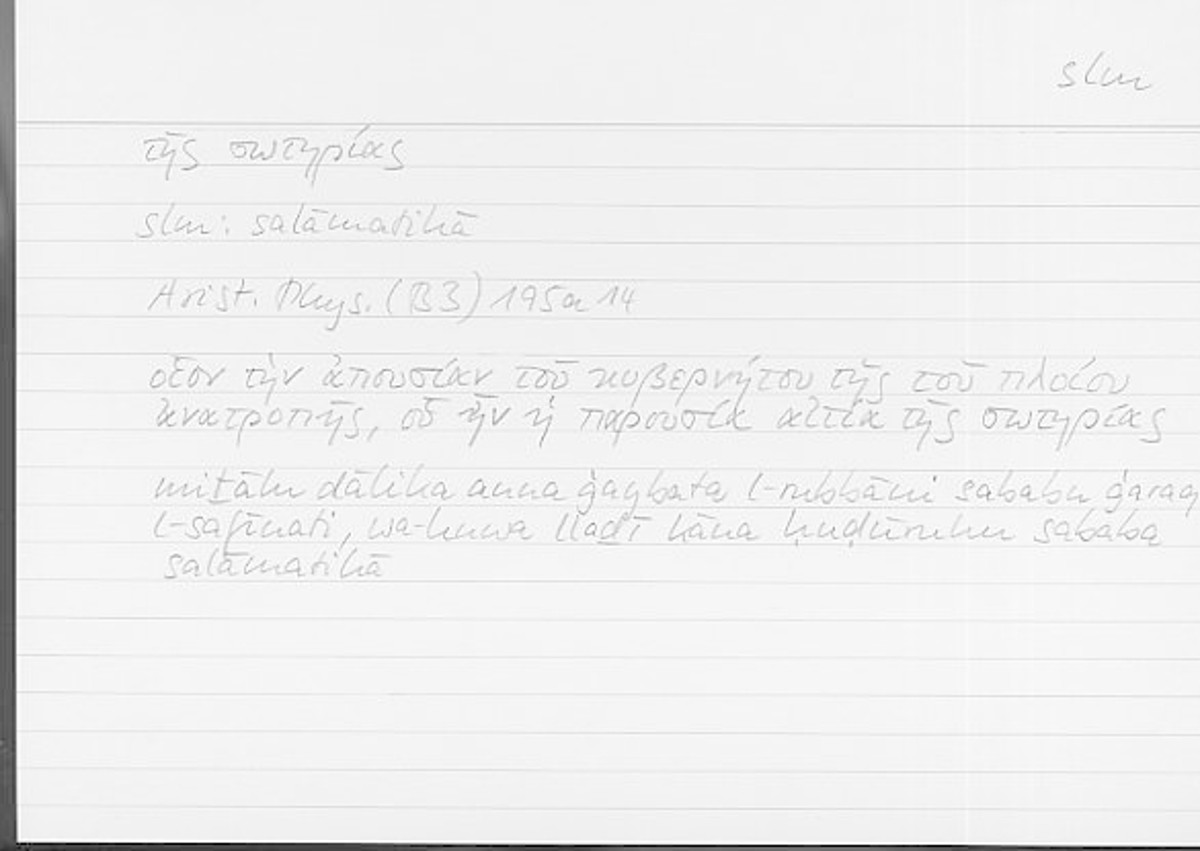 slm
τῆς σωτηρίας
slm: salāmatihā
Arist. Phys. (B3) 195a14
οἷον τὴν ἀπουσίαν τοῦ κυβερνήτου τῆς τοῦ πλοίου
ἀνατροπῆς, οὗ ἦν ἡ παρουσία αἰτία τῆς σωτηρίας
miṯālu ḏālika anna ġaybata l-rubbāni sababu ġaraq
l-safīnati, wa-huwa llaḏī kāna ḥuḍūruhu sababa
salāmatihā